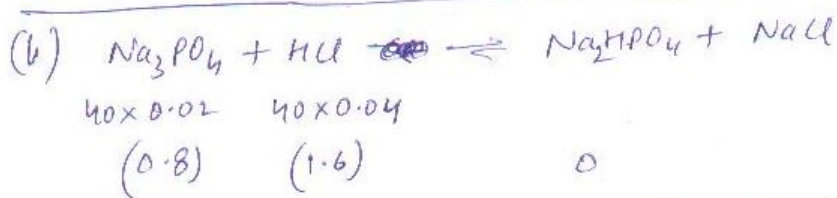 (b) Na₃PO₄ + HCl ⇌ Na₂HPO₄ + NaCl
40×0.02 40×0.04
(0.8) (1.6) 0